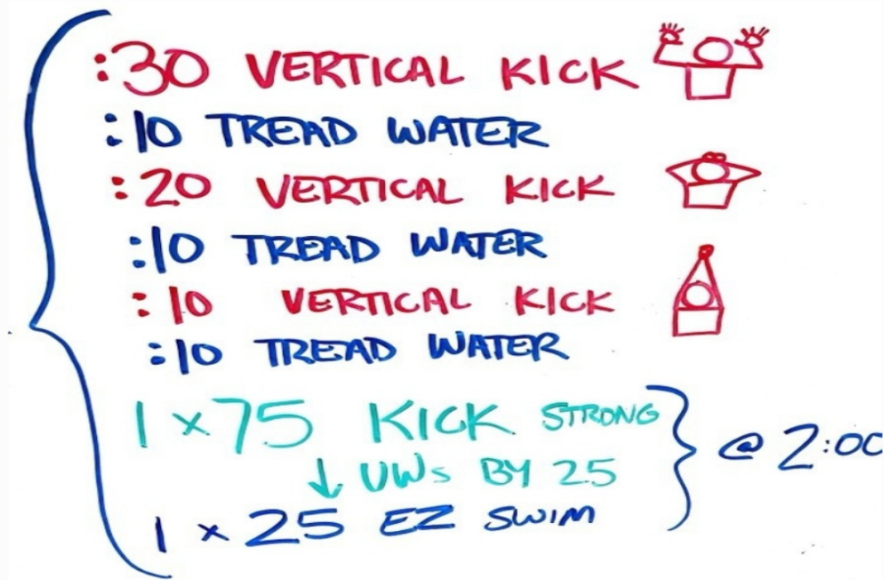 :30 VERTICAL KICK
:10 TREAD WATER
:20 VERTICAL KICK
:10 TREAD WATER
:10 VERTICAL KICK
:10 TREAD WATER
1 x 75 KICK STRONG
↓ UWs BY 25
@ 2:00
1 x 25 EZ SWIM